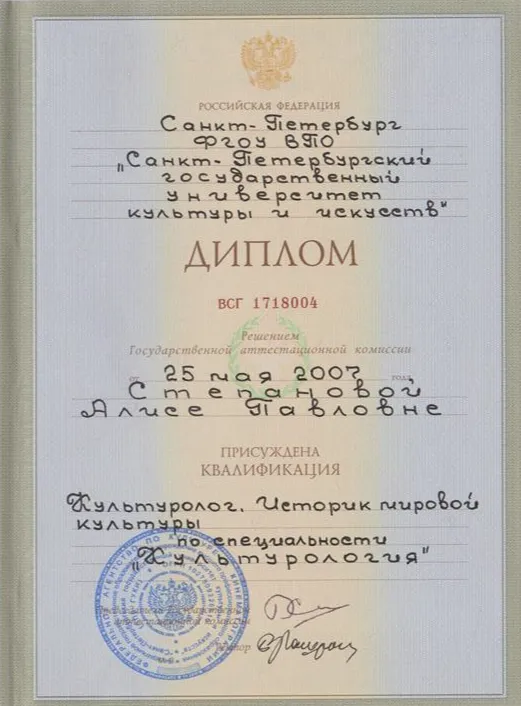 РОССИЙСКАЯ ФЕДЕРАЦИЯ
Санкт-Петербург
ФГОУ ВПО
„Санкт-Петербургский
государственный
университет
культуры и искусств"
ДИПЛОМ
ВСГ 1718004
Решением
Государственной аттестационной комиссии
от 25 мая 2007 года
Степановой
Алисе Павловне
ПРИСУЖДЕНА
КВАЛИФИКАЦИЯ
Культуролог. Историк мировой
культуры
по специальности
„Культурология"
Председатель Государственной
аттестационной комиссии
Ректор
ФЕДЕРАЛЬНОЕ АГЕНТСТВО ПО КУЛЬТУРЕ И КИНЕМАТОГРАФИИ